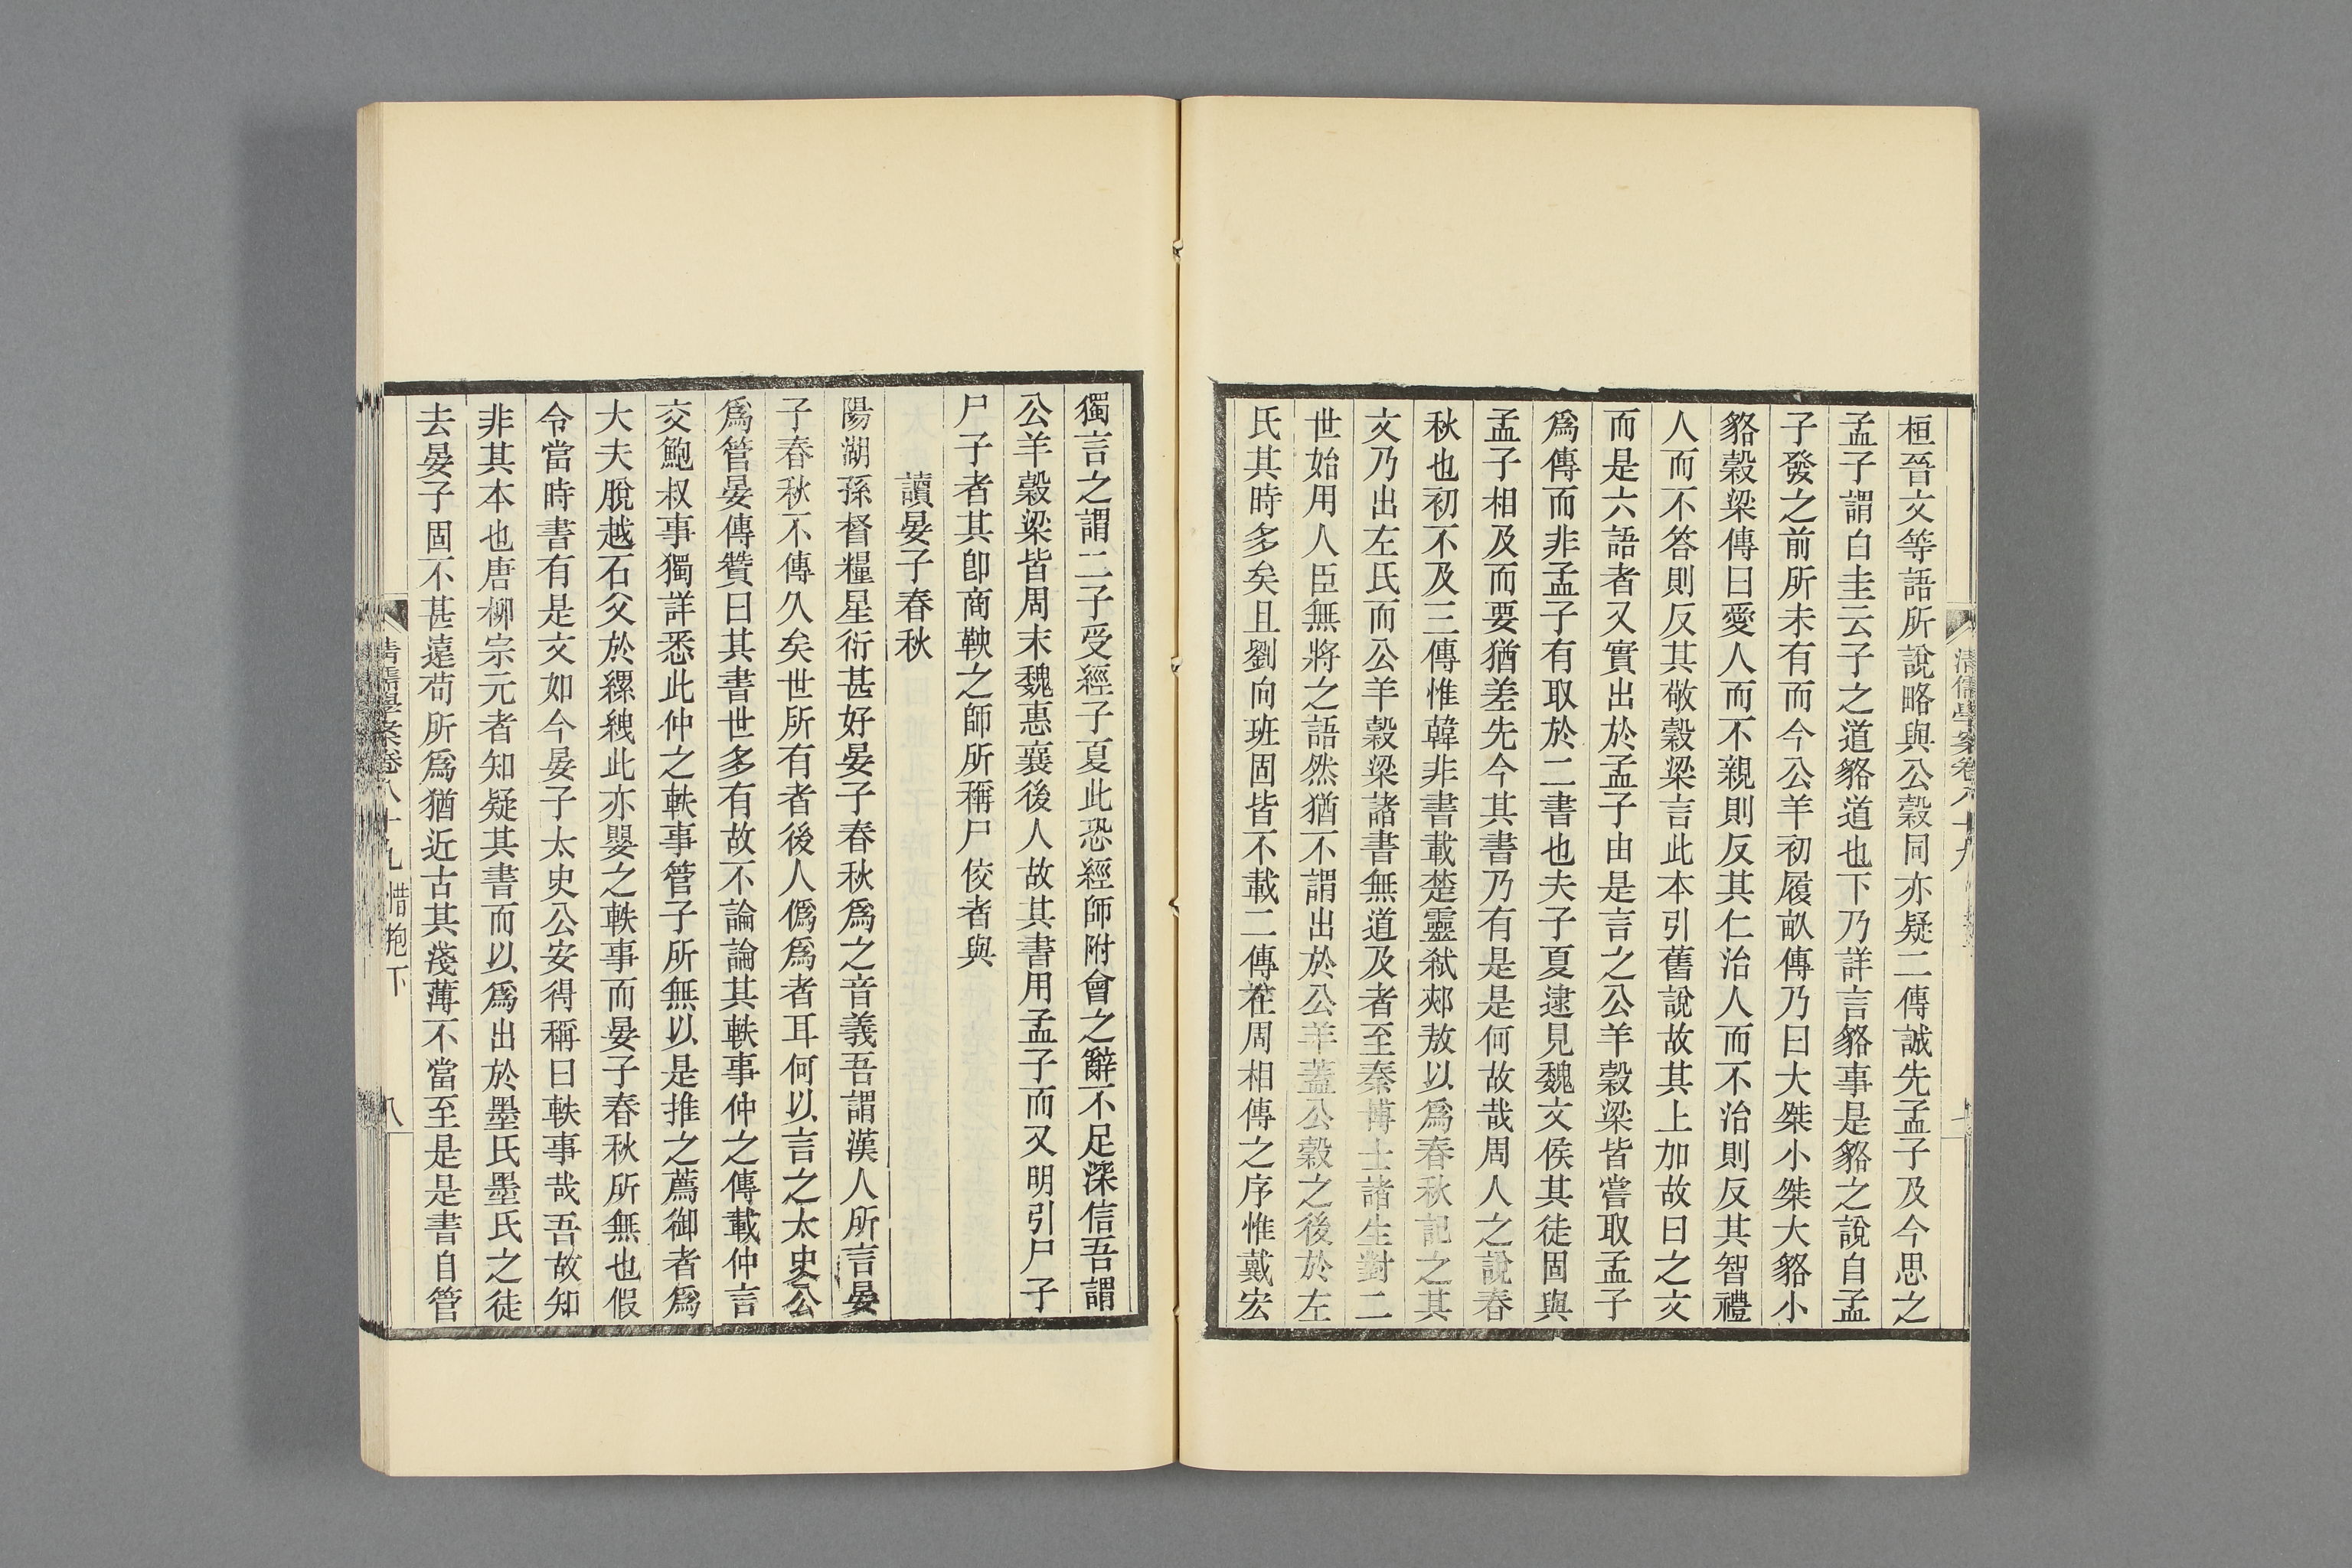 桓晉文等語所說略與公穀同亦疑二傳誠先孟子及今思之
孟子謂白圭云子之道貉道也下乃詳言貉事是貉之說自孟
子發之前所未有而今公羊初履畝傳乃曰大桀小桀大貉小
貉穀梁傳曰愛人而不親則反其仁治人而不治則反其智禮
人而不答則反其敬穀梁言此本引舊說故其上加故曰之文
而是六語者又實出於孟子由是言之公羊穀梁皆嘗取孟子
爲傳而非孟子有取於二書也夫子夏逮見魏文侯其徒固與
孟子相及而要猶差先今其書乃有是是何故哉周人之說春
秋也初不及三傳惟韓非書載楚靈弒郟敖以爲春秋記之其
文乃出左氏而公羊穀梁諸書無道及者至秦博士諸生對二
世始用人臣無將之語然猶不謂出於公羊蓋公穀之後於左
氏其時多矣且劉向班固皆不載二傳在周相傳之序惟戴宏
清儒學案卷八十九
獨言之謂二子受經子夏此恐經師附會之辭不足深信吾謂
公羊穀梁皆周末魏惠襄後人故其書用孟子而又明引尸子
尸子者其卽商鞅之師所稱尸佼者與
讀晏子春秋
陽湖孫督糧星衍甚好晏子春秋爲之音義吾謂漢人所言晏
子春秋不傳久矣世所有者後人僞爲者耳何以言之太史公
爲管晏傳贊曰其書世多有故不論論其軼事仲之傳載仲言
交鮑叔事獨詳悉此仲之軼事管子所無以是推之薦御者爲
大夫脫越石父於縲紲此亦嬰之軼事而晏子春秋所無也假
令當時書有是文如今晏子太史公安得稱曰軼事哉吾故知
非其本也唐柳宗元者知疑其書而以爲出於墨氏墨氏之徒
去晏子固不甚遠苟所爲猶近古其淺薄不當至是是書自管
清儒學案卷八十九 惜抱下
八